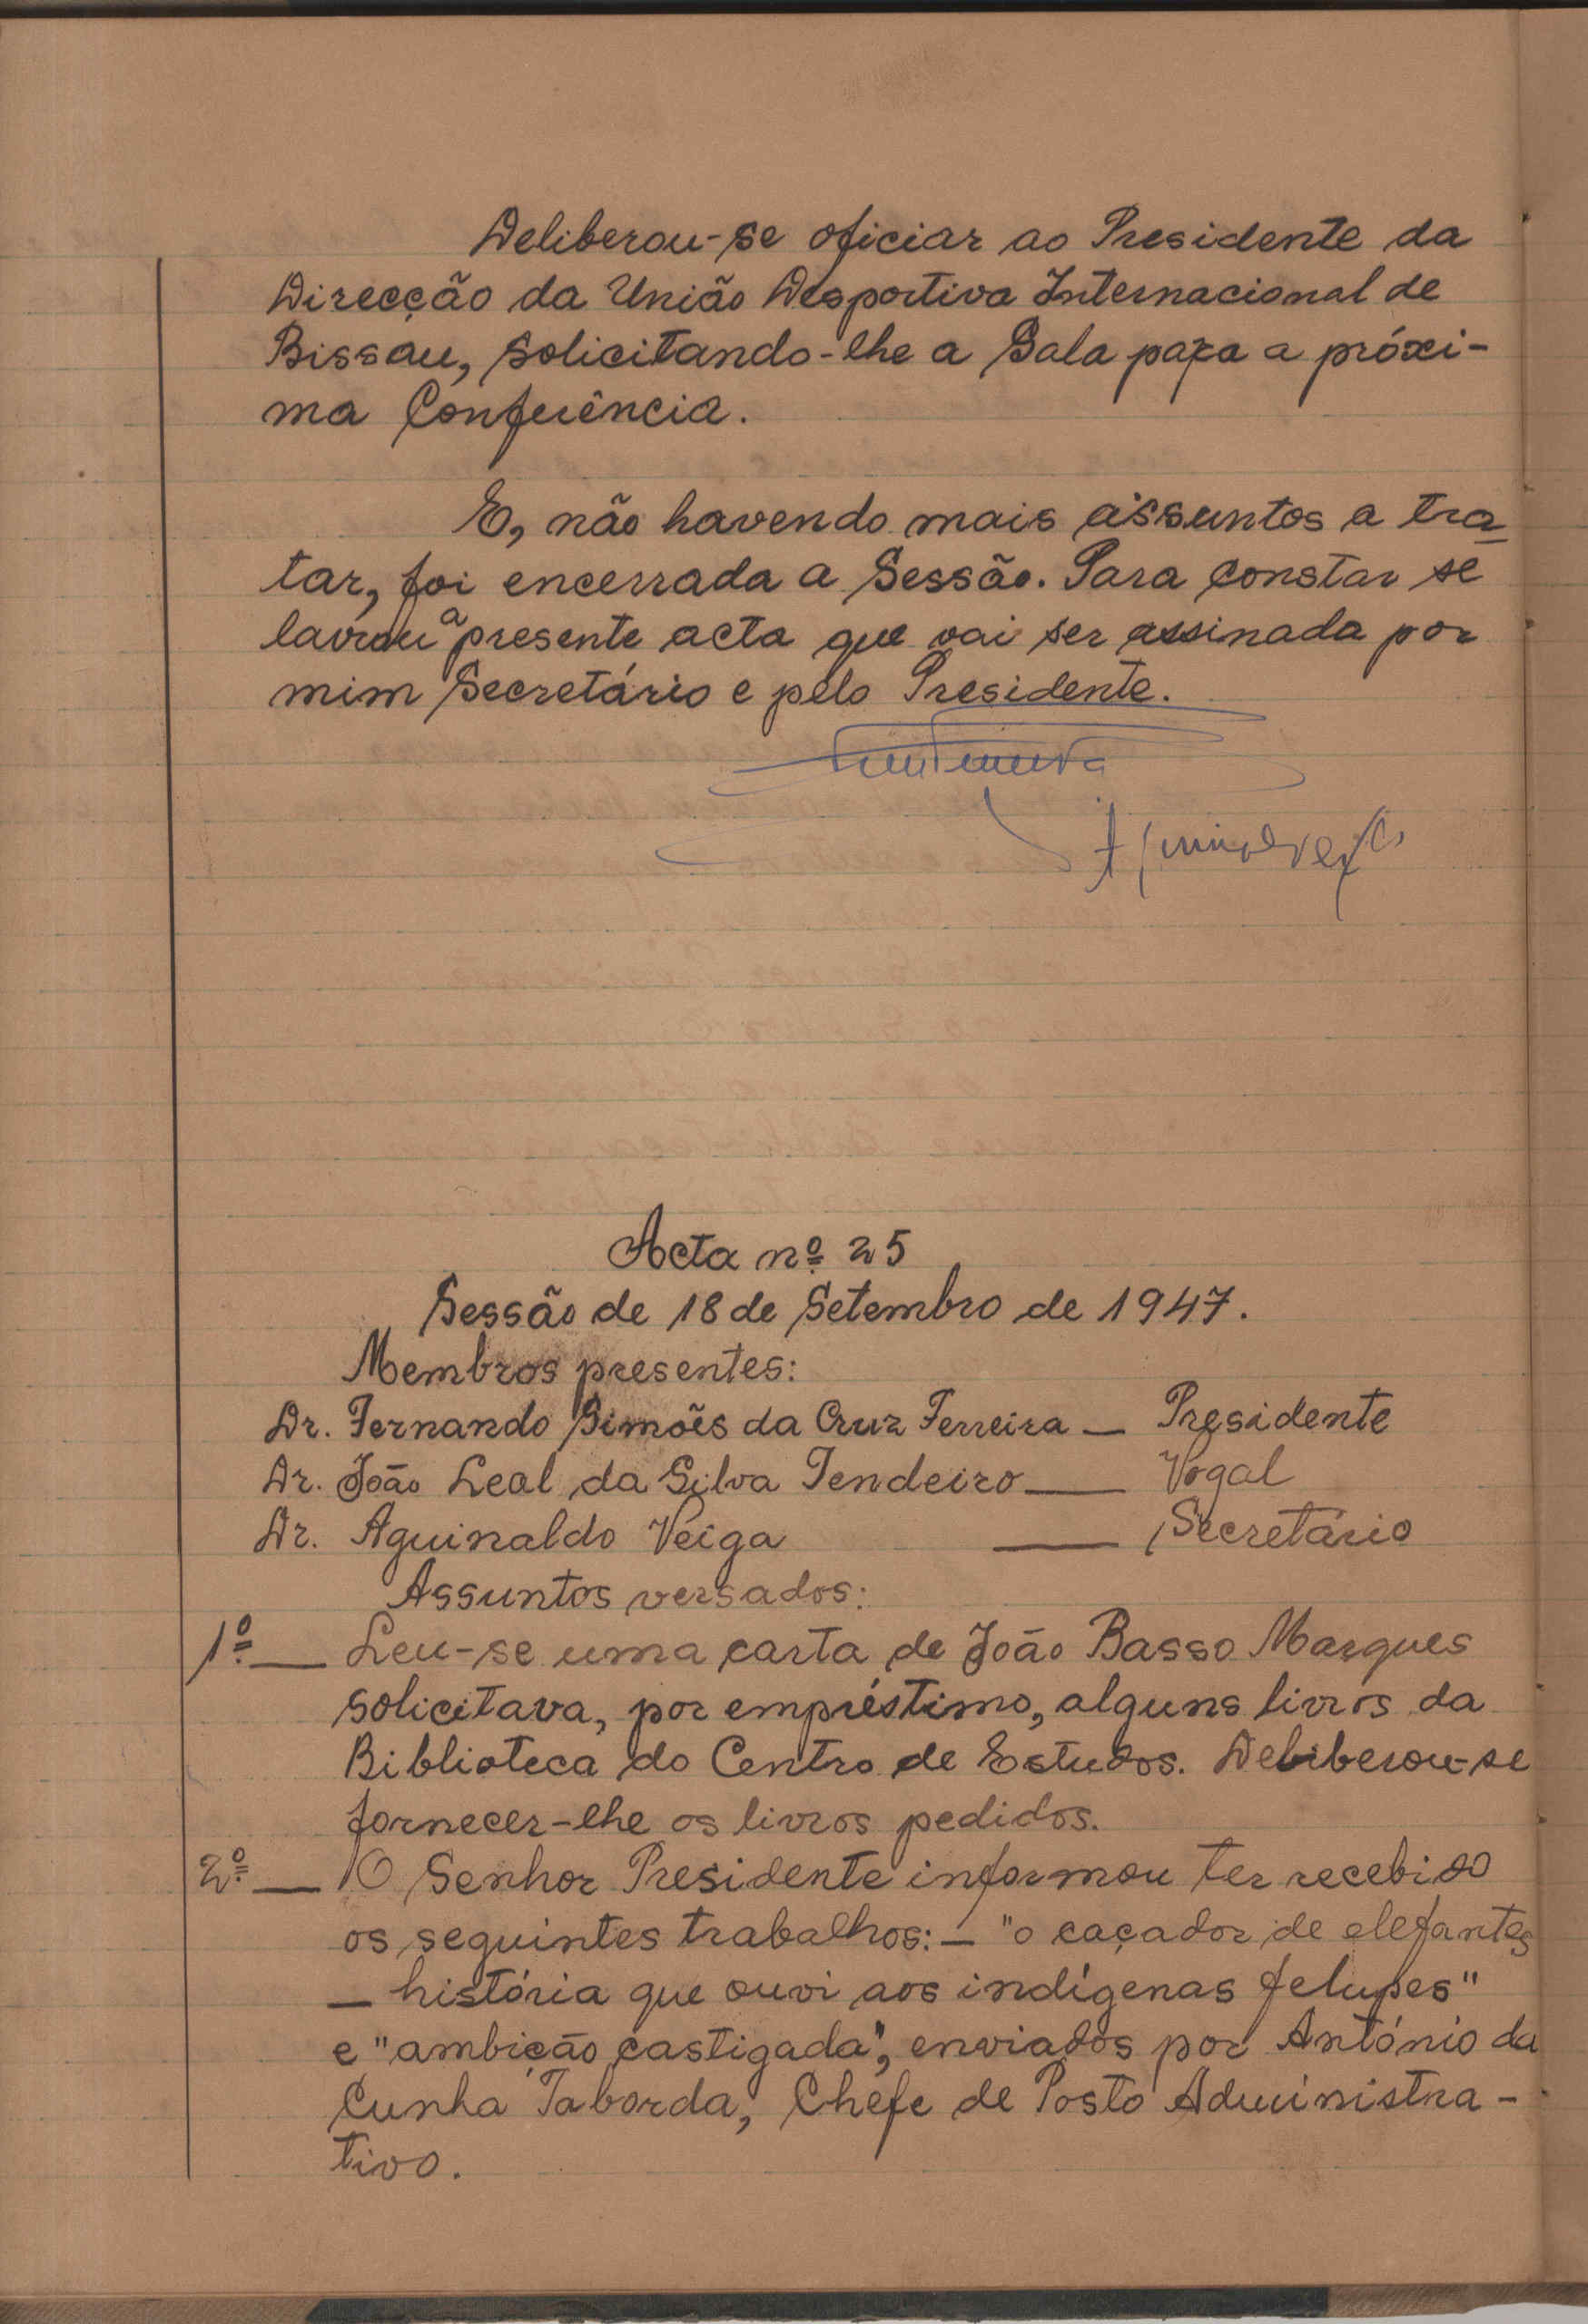 Deliberou-se oficiar ao Presidente da
Direcção da União Desportiva Internacional de
Bissau, solicitando-lhe a Sala para a próxi-
ma Conferência.
E, não havendo mais assuntos a tra
tar, foi encerrada a Sessão. Para constar se
lavrou a presente acta que vai ser assinada por
mim Secretário e pelo Presidente.
Acta nº 25
Sessão de 18 de Setembro de 1947.
Membros presentes:
Dr. Fernando Simões da Cruz Ferreira — Presidente
Dr. João Leal da Silva Tendeiro — Vogal
Dr. Aguinaldo Veiga — Secretário
Assuntos versados:
1º — Leu-se uma carta de João Basso Marques
solicitava, por empréstimo, alguns livros da
Biblioteca do Centro de Estudos. Deliberou-se
fornecer-lhe os livros pedidos.
2º — O Senhor Presidente informou ter recebido
os seguintes trabalhos: — "o caçador de elefantes
— história que ouvi aos indígenas felupes"
e "ambição castigada", enviados por António da
Cunha Taborda, Chefe de Posto Administra-
tivo.